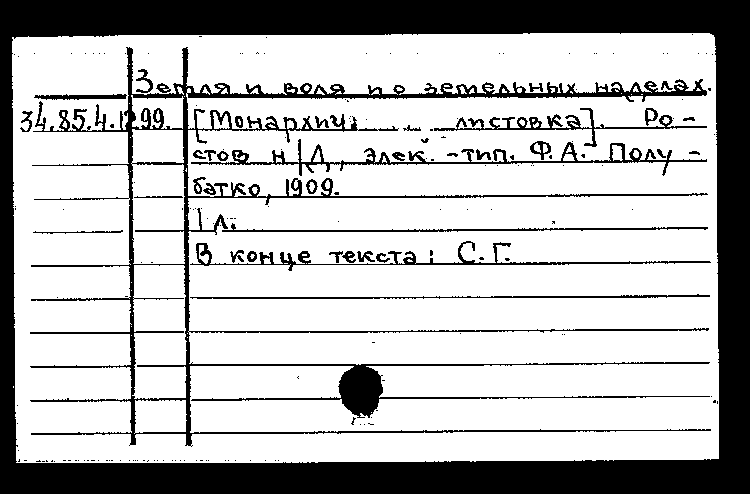 Земля и воля по земельных наделах.
34.85.4.1299. [Монархич. ... листовка]. Ро-
стов н/Д, элек.-тип. Ф.А. Полу-
батко, 1909.
1 л.
В конце текста: С.Г.